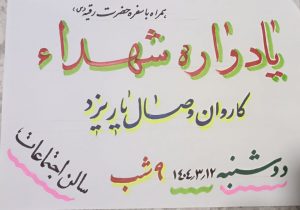 همراه با سفره حضرت رقیه (س)
یادواره شهداء
کاروان وصال یار یزد
دوشنبه ۱۴۰۴،۳،۱۲ ۹ شب
سالن اجتماعات